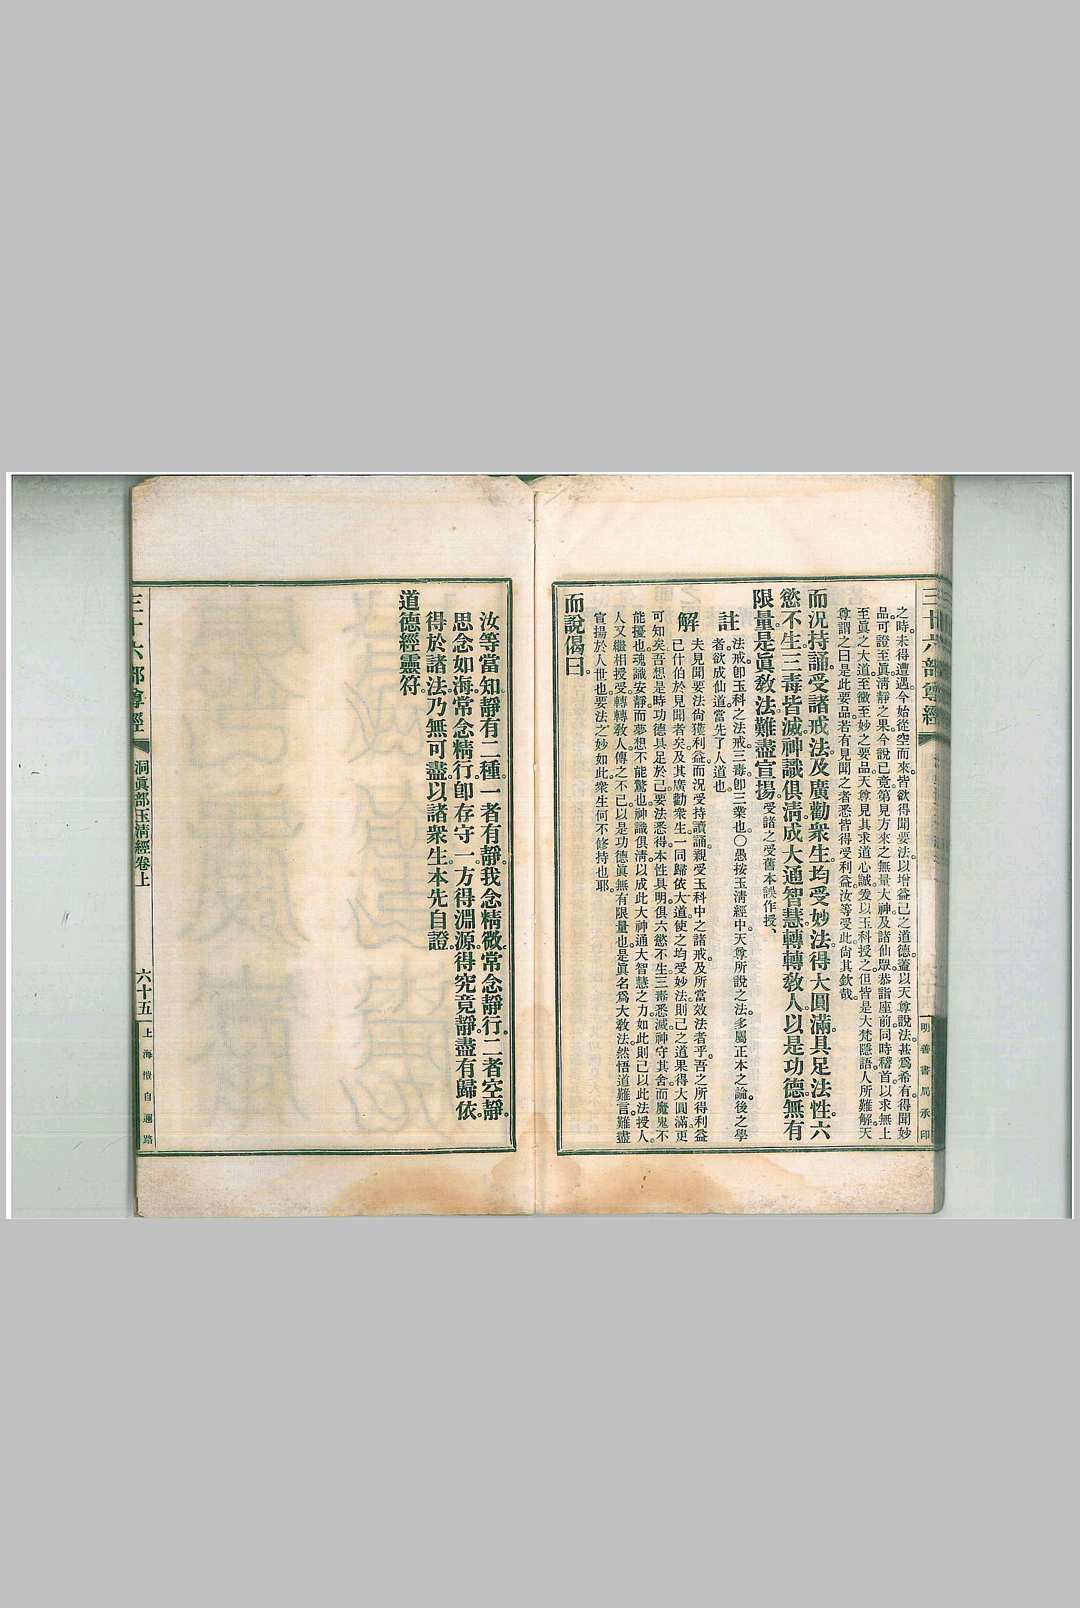 三十六部尊經
明善書局承印
之時。未得遭遇。今始從空而來。皆欲得聞要法。以增益己之道德。蓋以天尊說法。甚爲希有。得聞妙
品。可證至眞淸靜之果。今說已竟。第見方來之無量大神。及諸仙眾。恭詣座前。同時稽首。以求無上
至眞之大道。至微至妙之要品。天尊見其求道心誠。爰以玉科授之。但皆是大梵隱語。人所難解。天
尊謂之曰。是此要品。若有見聞之者。悉皆得受利益。汝等受此。尙其欽哉。
而況持誦。受諸戒法。及廣勸衆生。均受妙法。得大圓滿。具足法性。六
慾不生。三毒皆滅。神識俱淸。成大通智慧。轉轉敎人。以是功德。無有
限量。是眞敎法。難盡宣揚。受諸之受。舊本誤作授、
註 法戒。卽玉科之法戒。三毒。卽三業也。〇愚按玉淸經中。天尊所說之法。多屬正本之論。後之學
者。欲成仙道。當先了人道也。
解 夫見聞要法。尙獲利益。而況受持讀誦。親受玉科中之諸戒。及所當效法者乎。吾之所得利益
已什伯於見聞者矣。及其廣勸衆生。一同歸依大道。使之均受妙法。則己之道果。得大圓滿。更
可知矣。吾想是時。功德具足於己。要法悉得。本性具明。俱六慾不生。三毒悉滅。神守其舍。而魔鬼不
能擾也。魂識安靜。而夢想不能驚也。神識俱淸。以成此大神通大智慧之力。如此則己以此法授人。
人又繼相授受。轉轉敎人。傳之不已。以是功德。眞無有限量也。是眞名爲大敎法。然悟道難言。難盡
宣揚於人世也。要法之妙如此。衆生何不修持也耶。
而說偈曰。
汝等當知。靜有二種。一者有靜。我念精微。常念靜行。二者空靜。
思念如海。常念精行。卽存守一。方得淵源。得究竟靜。盡有歸依。
得於諸法。乃無可盡。以諸衆生。本先自證。
道德經靈符
三十六部尊經
洞眞部玉淸經卷上
六十五
上海愷自邇路